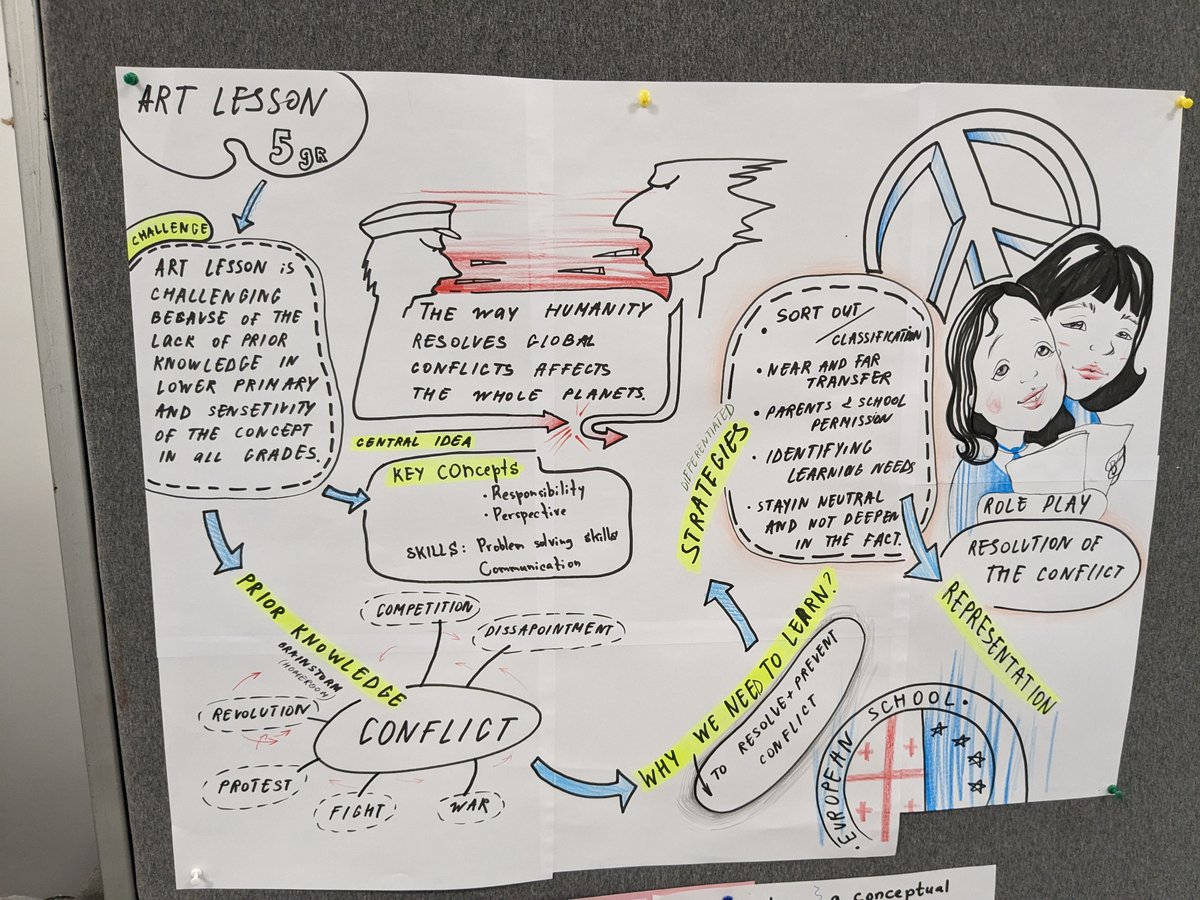 ART LESSON
5 gR
CHALLENGE
ART LESSON iS
CHALLENGING
BECAUSE OF THE
LACK OF PRIOR
KNOWLEDGE IN
LOWER PRIMARY
AND SENSETIVITY
OF THE CONCEPT
IN ALL GRADES.
THE WAY HUMANITY
RESOLVES GLOBAL
CONFLICTS AFFECTS
THE WHOLE PLANETS.
CENTRAL IDEA
KEY CONCEPTS
• Responsibility
• Perspective
SKILLS: Problem solving skills
Communication
PRIOR KNOWLEDGE
BRAINSTORM
(HOMEROOM)
CONFLICT
COMPETITION
DISSAPOINTMENT
REVOLUTION
PROTEST
FIGHT
WAR
WHY WE NEED TO LEARN?
TO RESOLVE + PREVENT
CONFLICT
DIFFERENTIATED
STRATEGIES
• SORT OUT /
CLASSIFICATION
• NEAR AND FAR
TRANSFER
• PARENTS & SCHOOL
PERMISSION
• IDENTIFYING
LEARNING NEEDS
• STAYIN NEUTRAL
AND NOT DEEPEN
IN THE FACT.
ROLE PLAY
RESOLUTION OF
THE CONFLICT
REPRESENTATION
• EVROPEAN SCHOOL •
conceptual